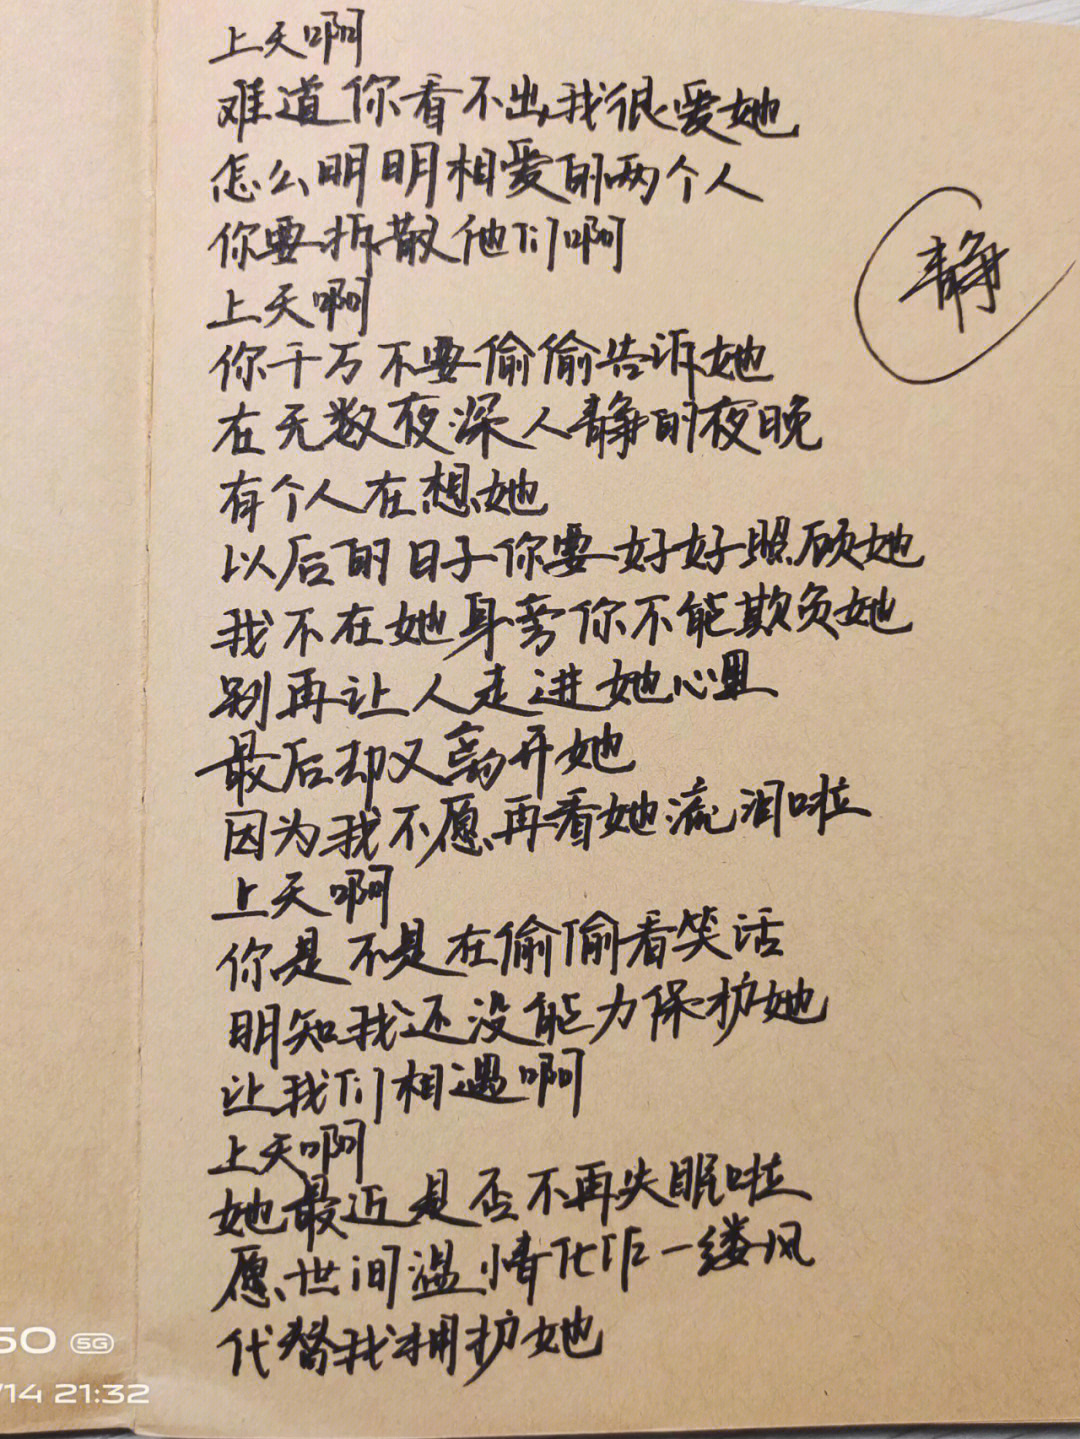 上天啊
难道你看不出我很爱她
怎么明明相爱的两个人
你要拆散他们啊
上天啊
你千万不要偷偷告诉她
在无数夜深人静的夜晚
有个人在想她
以后的日子你要好好照顾她
我不在她身旁你不能欺负她
别再让人走进她心里
最后却又离开她
因为我不愿再看她流泪啦
上天啊
你是不是在偷偷看笑话
明知我还没能力保护她
让我们相遇啊
上天啊
她最近是否不再失眠啦
愿世间温情化作一缕风
代替我拥护她
静
50 5G
/14 21:32